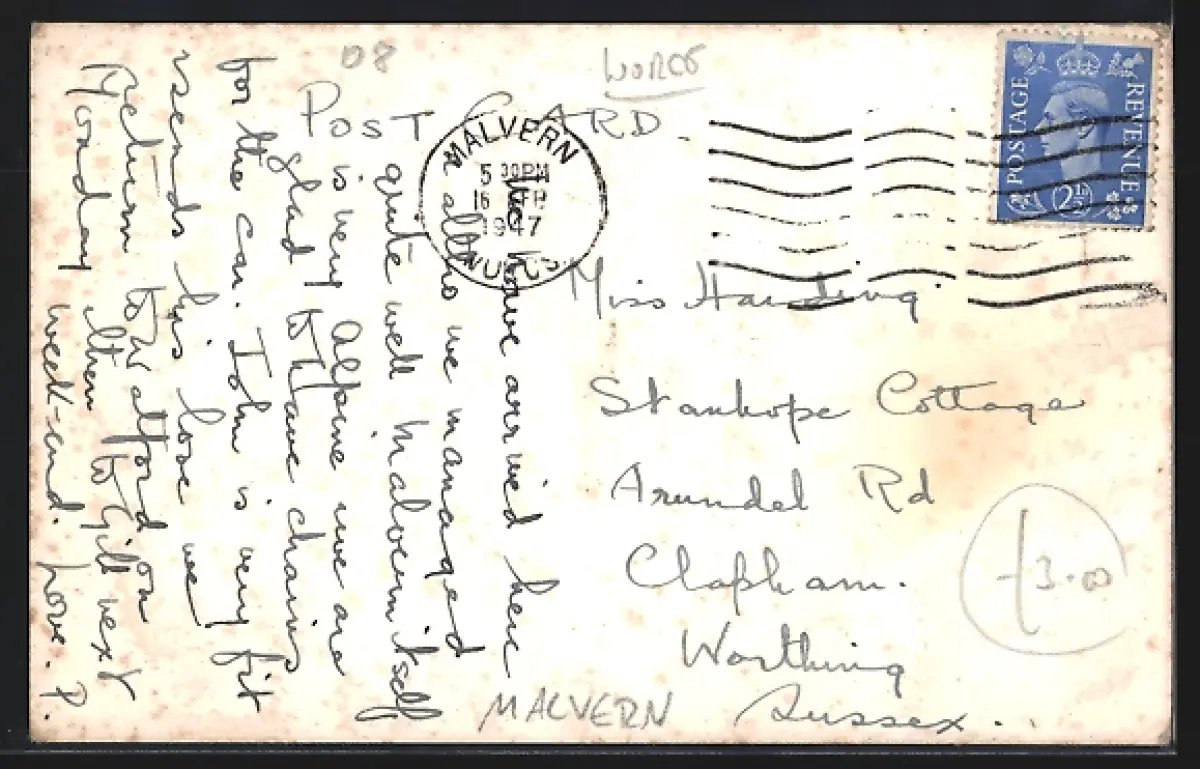 08
WORCS
POST CARD
MALVERN
5 30PM
16
1947
POSTAGE REVENUE
2½
We have arrived here
& allso we managed
quite well Malvern itself
is very Alpine we are
glad to have chains
for the car. John is very fit
sends his love we
return to Watford on
Monday then to Gill next
week-end. Love. P.
Miss Harding
Stanhope Cottage
Arundel Rd
Clapham.
Worthing
Sussex.
£3.00
MALVERN